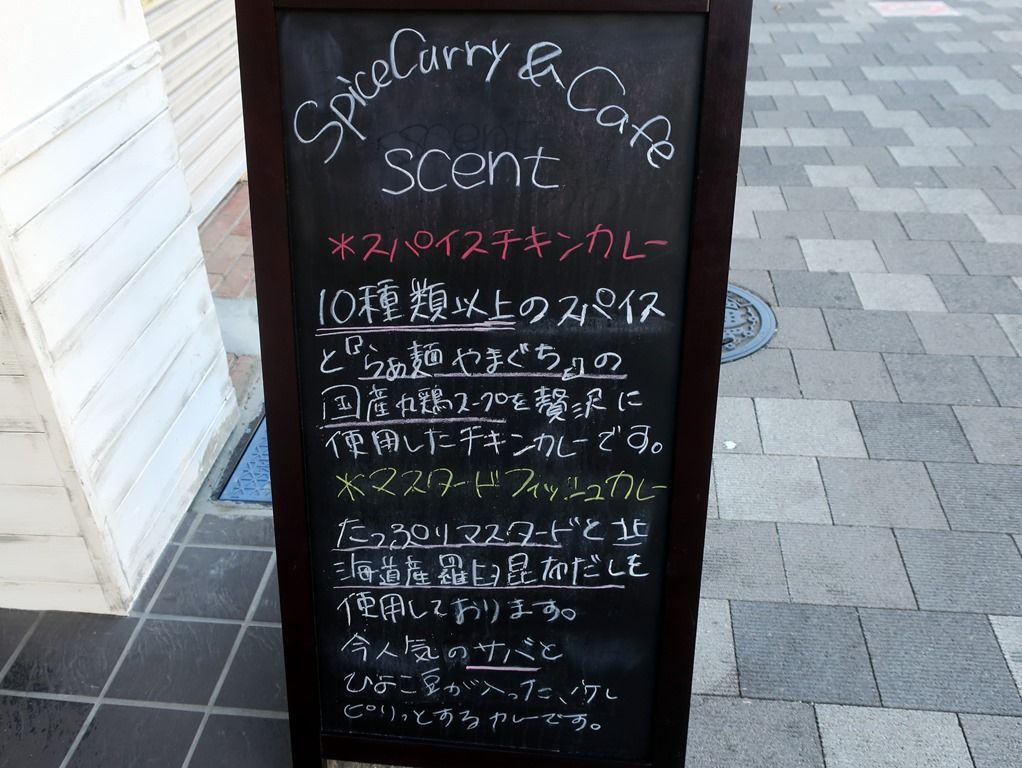 SpiceCurry & Cafe
scent
*スパイスチキンカレー
10種類以上のスパイス
と『らぁ麺 やまぐち』の
国産丸鶏スープを贅沢に
使用したチキンカレーです。
*マスタードフィッシュカレー
たっぷりマスタードと北
海道産羅臼昆布だしを
使用しております。
今人気のサバと
ひよこ豆が入った、少し
ピリッとするカレーです。